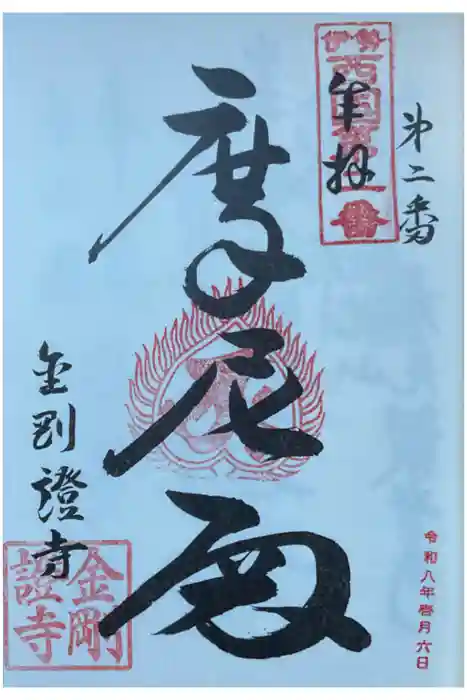 第二番
伊勢
西国第二番
奉拝
摩尼殿
金剛證寺
金剛
證寺
令和八年壱月六日